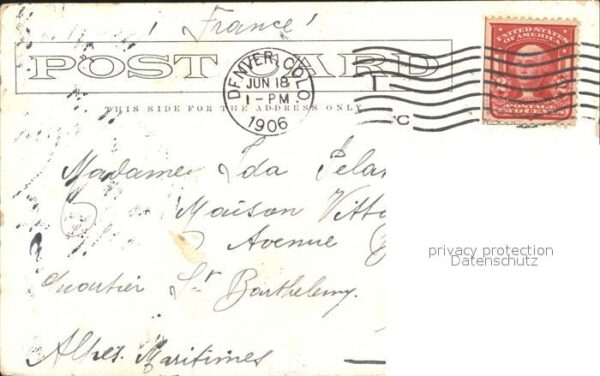 France
POST CARD
DENVER, COLO.
JUN 18
1-PM
1906
C
UNITED STATES
OF AMERICA
POSTAGE
TWO CENTS
THIS SIDE FOR THE ADDRESS ONLY
Madame Ida Pela
Maison Vitto
Avenue
Quartier St Barthelemy.
Alpes Maritimes
privacy protection
Datenschutz